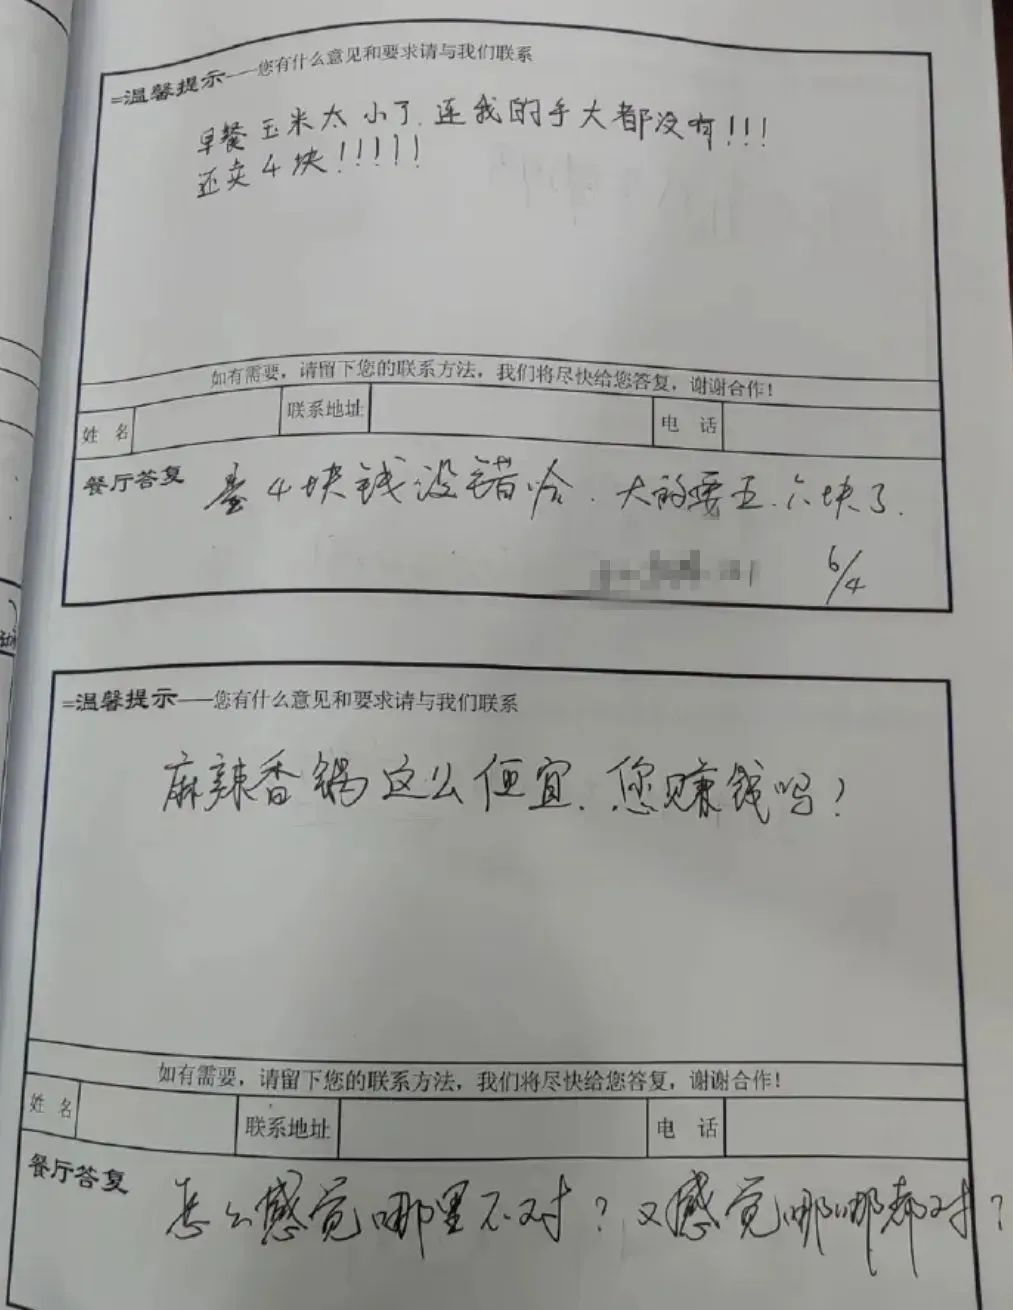 =温馨提示——您有什么意见和要求请与我们联系
早餐玉米太小了.连我的手大都没有!!!
还卖4块!!!!!
如有需要，请留下您的联系方法，我们将尽快给您答复，谢谢合作!
姓 名 联系地址 电 话
餐厅答复 4块钱没错哈.大的要五.六块了.
6/4
=温馨提示——您有什么意见和要求请与我们联系
麻辣香锅这么便宜.您赚钱吗?
如有需要，请留下您的联系方法，我们将尽快给您答复，谢谢合作!
姓 名 联系地址 电 话
餐厅答复 怎么感觉哪里不对?又感觉哪哪都对?